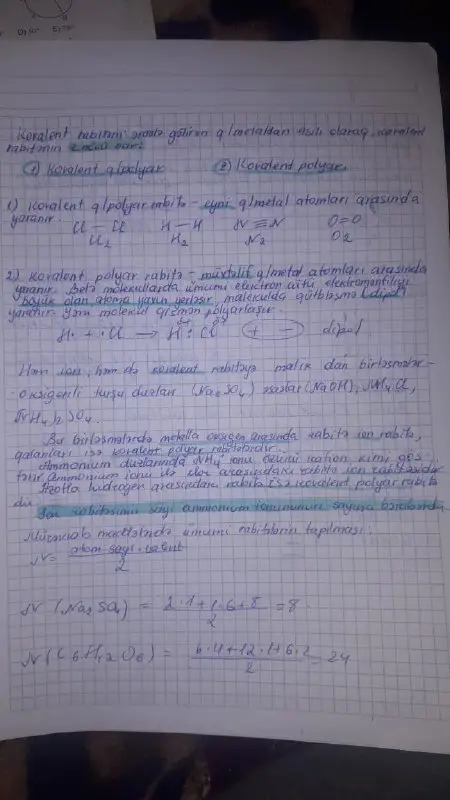 D) 50° E) 70°
Kovalent rabitəni əmələ gətirən q/metaldan asılı olaraq, kovalent
rabitənin 2 növü var:
① Kovalent q/polyar ② Kovalent polyar
1) Kovalent q/polyar rabitə - eyni q/metal atomları arasında
yaranır.
Cl - Cl H - H N ≡ N O = O
Cl2 H2 N2 O2
2) Kovalent polyar rabitə - müxtəlif q/metal atomları arasında
yaranır. Belə molekullarda ümumi elektron cütü elektromənfiliyi
böyük olan atoma yaxın yerləşir, molekulda qütbləşmə (dipol)
yaranır. Yəni molekul qismən polyarlaşır.
H· + ·Cl → H : Cl (+ -) dipol
Həm ion, həm də kovalent rabitəyə malik olan birləşmələr -
oksigenli turşu duzları (Na2SO4) əsaslar (NaOH), NH4Cl,
(NH4)2SO4.
Bu birləşmələrdə metalla oksigen arasında rabitə ion rabitə,
qalanları isə kovalent polyar rabitələrdir.
Ammonium duzlarında NH4+ ionu özünü kation kimi gös-
tərir. Ammonium ionu ilə xlor arasındakı rabitə ion rabitəsidir.
Azotla hidrogen arasındakı rabitə isə kovalent polyar rabitə
dir. İon rabitəsinin sayı ammonium ionunun sayına bərabərdir
Mürəkkəb maddələrdə ümumi rabitələrin tapılması:
N = atom sayı · valent
2
N (Na2SO4) = 2·1+1·6+8 = 8
2
N (C6H12O6) = 6·4+12·1+6·2 = 24
2